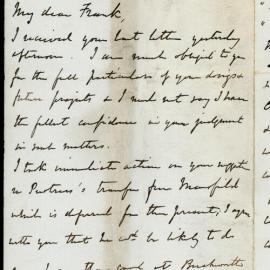 My dear Frank,
I received your last letter yesterday
afternoon. I am much obliged to you
for the full particulars of your designs &
future projects & I need not say I have
the fullest confidence in your judgment
in such matters.
I took immediate action on your suggestion
transfer from Mansfield
which is deferred for the present; I agree
with you that he wd. be likely to do
good at